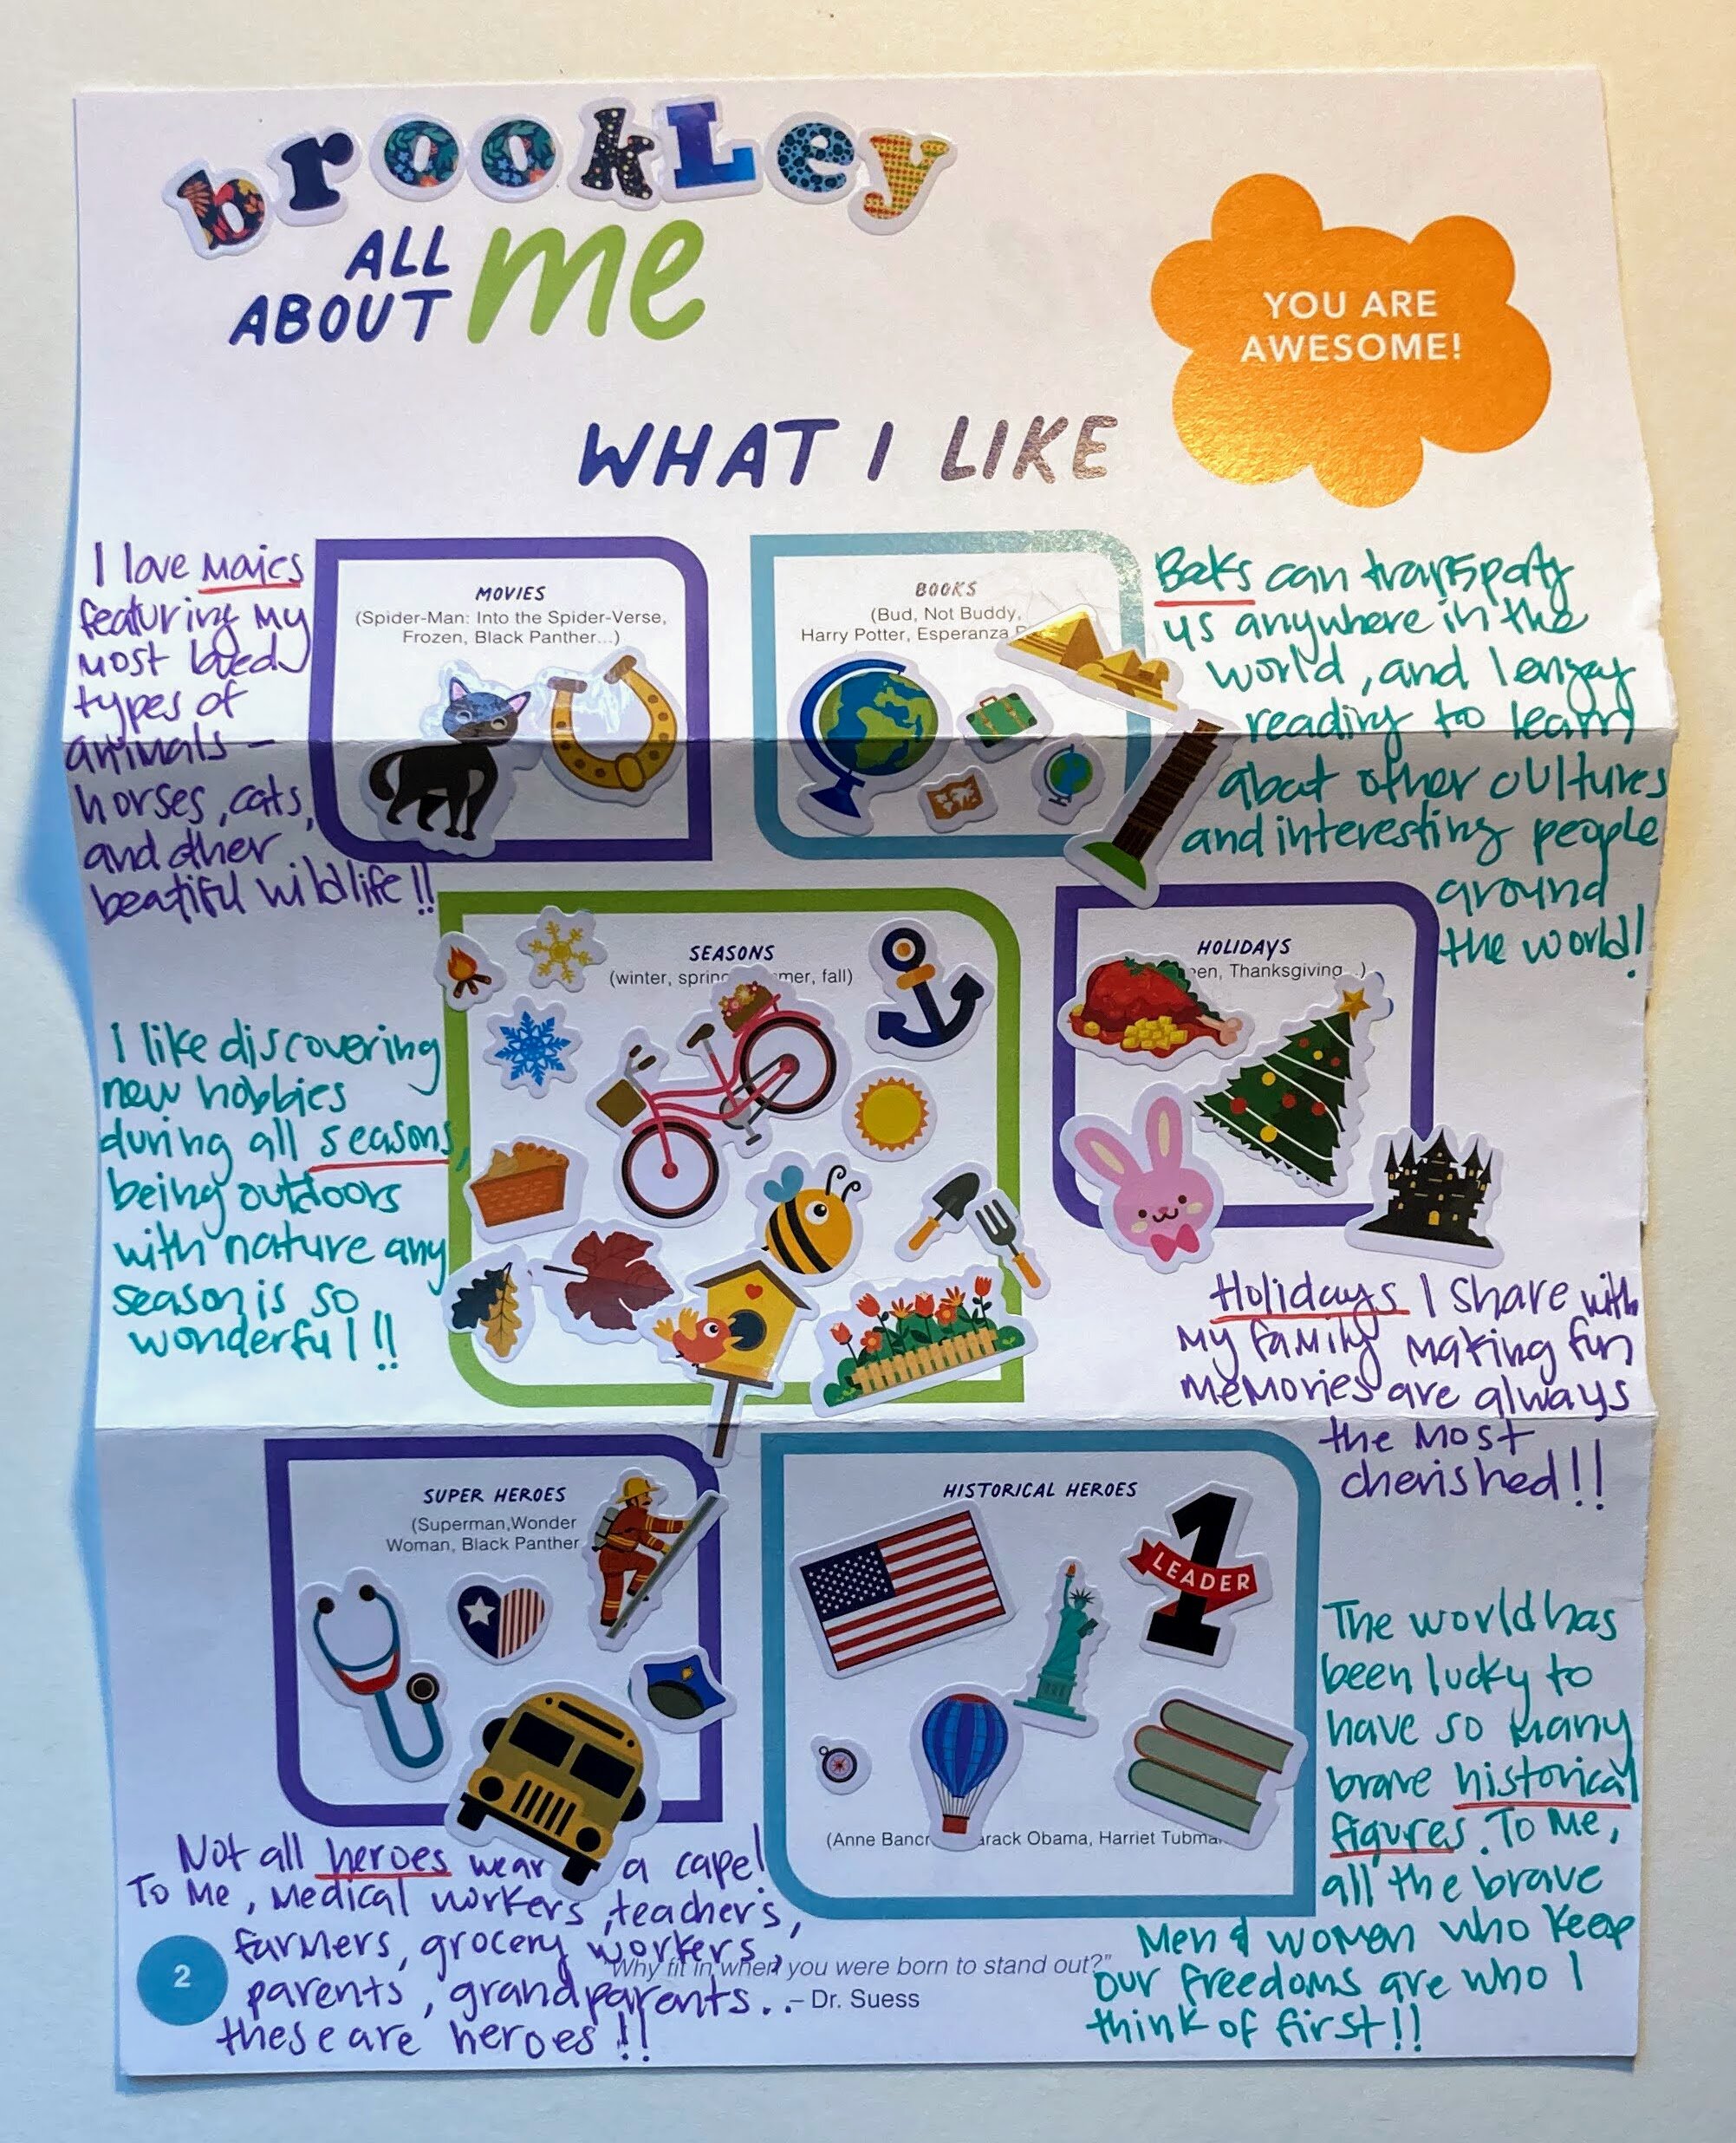 brookLey
ALL
ABOUT me
YOU ARE
AWESOME!
WHAT I LIKE
I love movies
featuring my
most loved
types of
animals –
horses, cats,
and other
beatiful wildlife!!
MOVIES
(Spider-Man: Into the Spider-Verse,
Frozen, Black Panther...)
BOOKS
(Bud, Not Buddy,
Harry Potter, Esperanza
Books can transport
us anywhere in the
world, and I enjoy
reading to learn
about other cultures
and interesting people
around
the world!
I like discovering
new hobbies
during all seasons,
being outdoors
with nature any
season is so
wonderful!!
SEASONS
(winter, spring, mer, fall)
HOLIDAYS
een, Thanksgiving...)
Holidays I share with
my family making fun
memories are always
the most
cherished!!
SUPER HEROES
(Superman,Wonder
Woman, Black Panther
HISTORICAL HEROES
1
LEADER
(Anne Bancr arack Obama, Harriet Tubma
Not all heroes wear a cape!
To me, medical workers, teachers,
farmers, grocery workers,
parents, grandparents...
these are heroes!!
The world has
been lucky to
have so many
brave historical
figures. To me,
all the brave
men & women who keep
our freedoms are who I
think of first!!
2
"Why fit in when you were born to stand out?"
– Dr. Suess